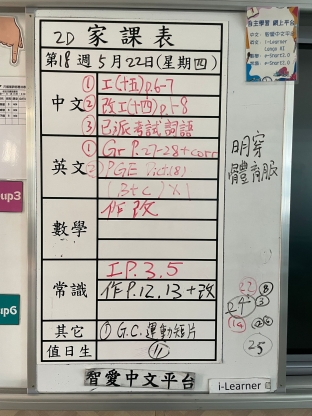 2D 家課表
第18週5月22日(星期四)
中文
① 工(十五)p.6-7
② 改工(十四)p.1-8
③ 已派考試詞語
英文
① Gr P.27-28+corr
② PGE
(B+C)
數學
作改
常識
工P.3.5
作P.12.13+改
其它
① G.C.運動短片
值日生
⑪
智愛中文平台
i-Learner
明穿
體育服
22 8
24 3
14
25
自主學習 網上平台
up3
upG